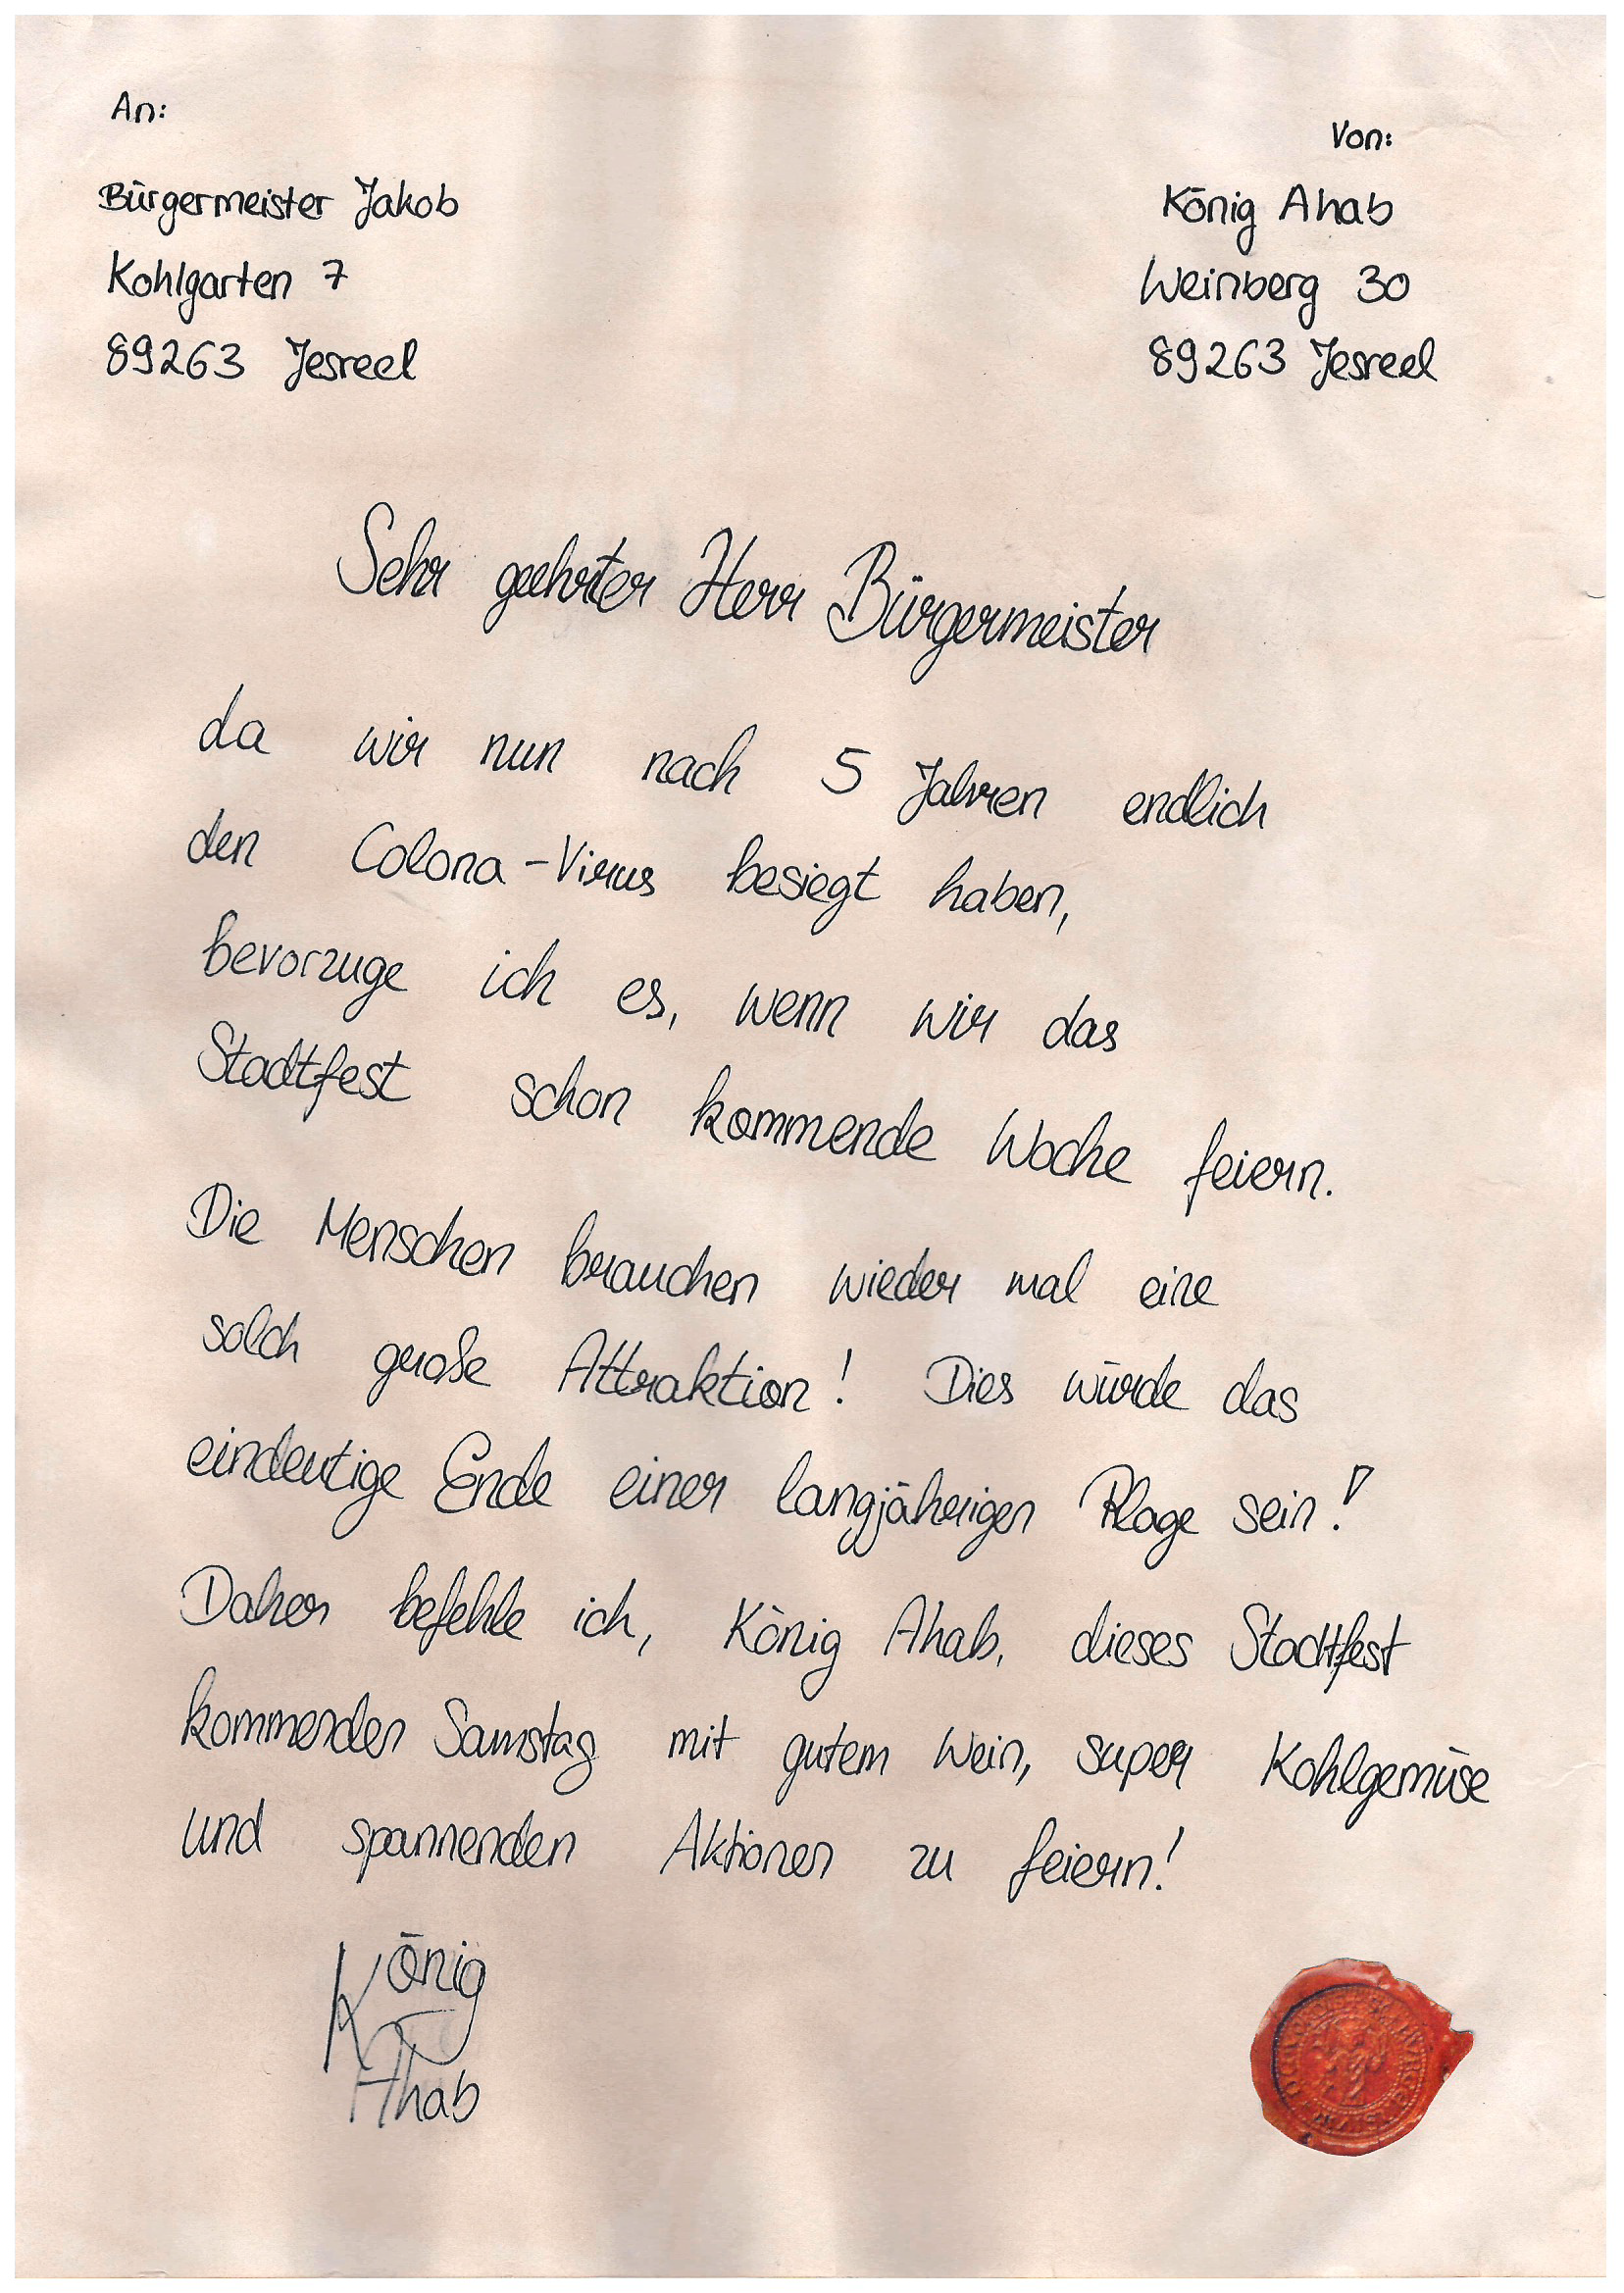 An:
Bürgermeister Jakob
Kohlgarten 7
89263 Jesreel
Von:
König Ahab
Weinberg 30
89263 Jesreel
Sehr geehrter Herr Bürgermeister
da wir nun nach 5 Jahren endlich
den Colona-Virus besiegt haben,
bevorzuge ich es, wenn wir das
Stadtfest schon kommende Woche feiern.
Die Menschen brauchen wieder mal eine
solch große Attraktion! Dies würde das
eindeutige Ende einer langjährigen Plage sein!
Daher befehle ich, König Ahab, dieses Stadtfest
kommenden Samstag mit gutem Wein, super Kohlgemüse
und spannenden Aktionen zu feiern!
König
Ahab